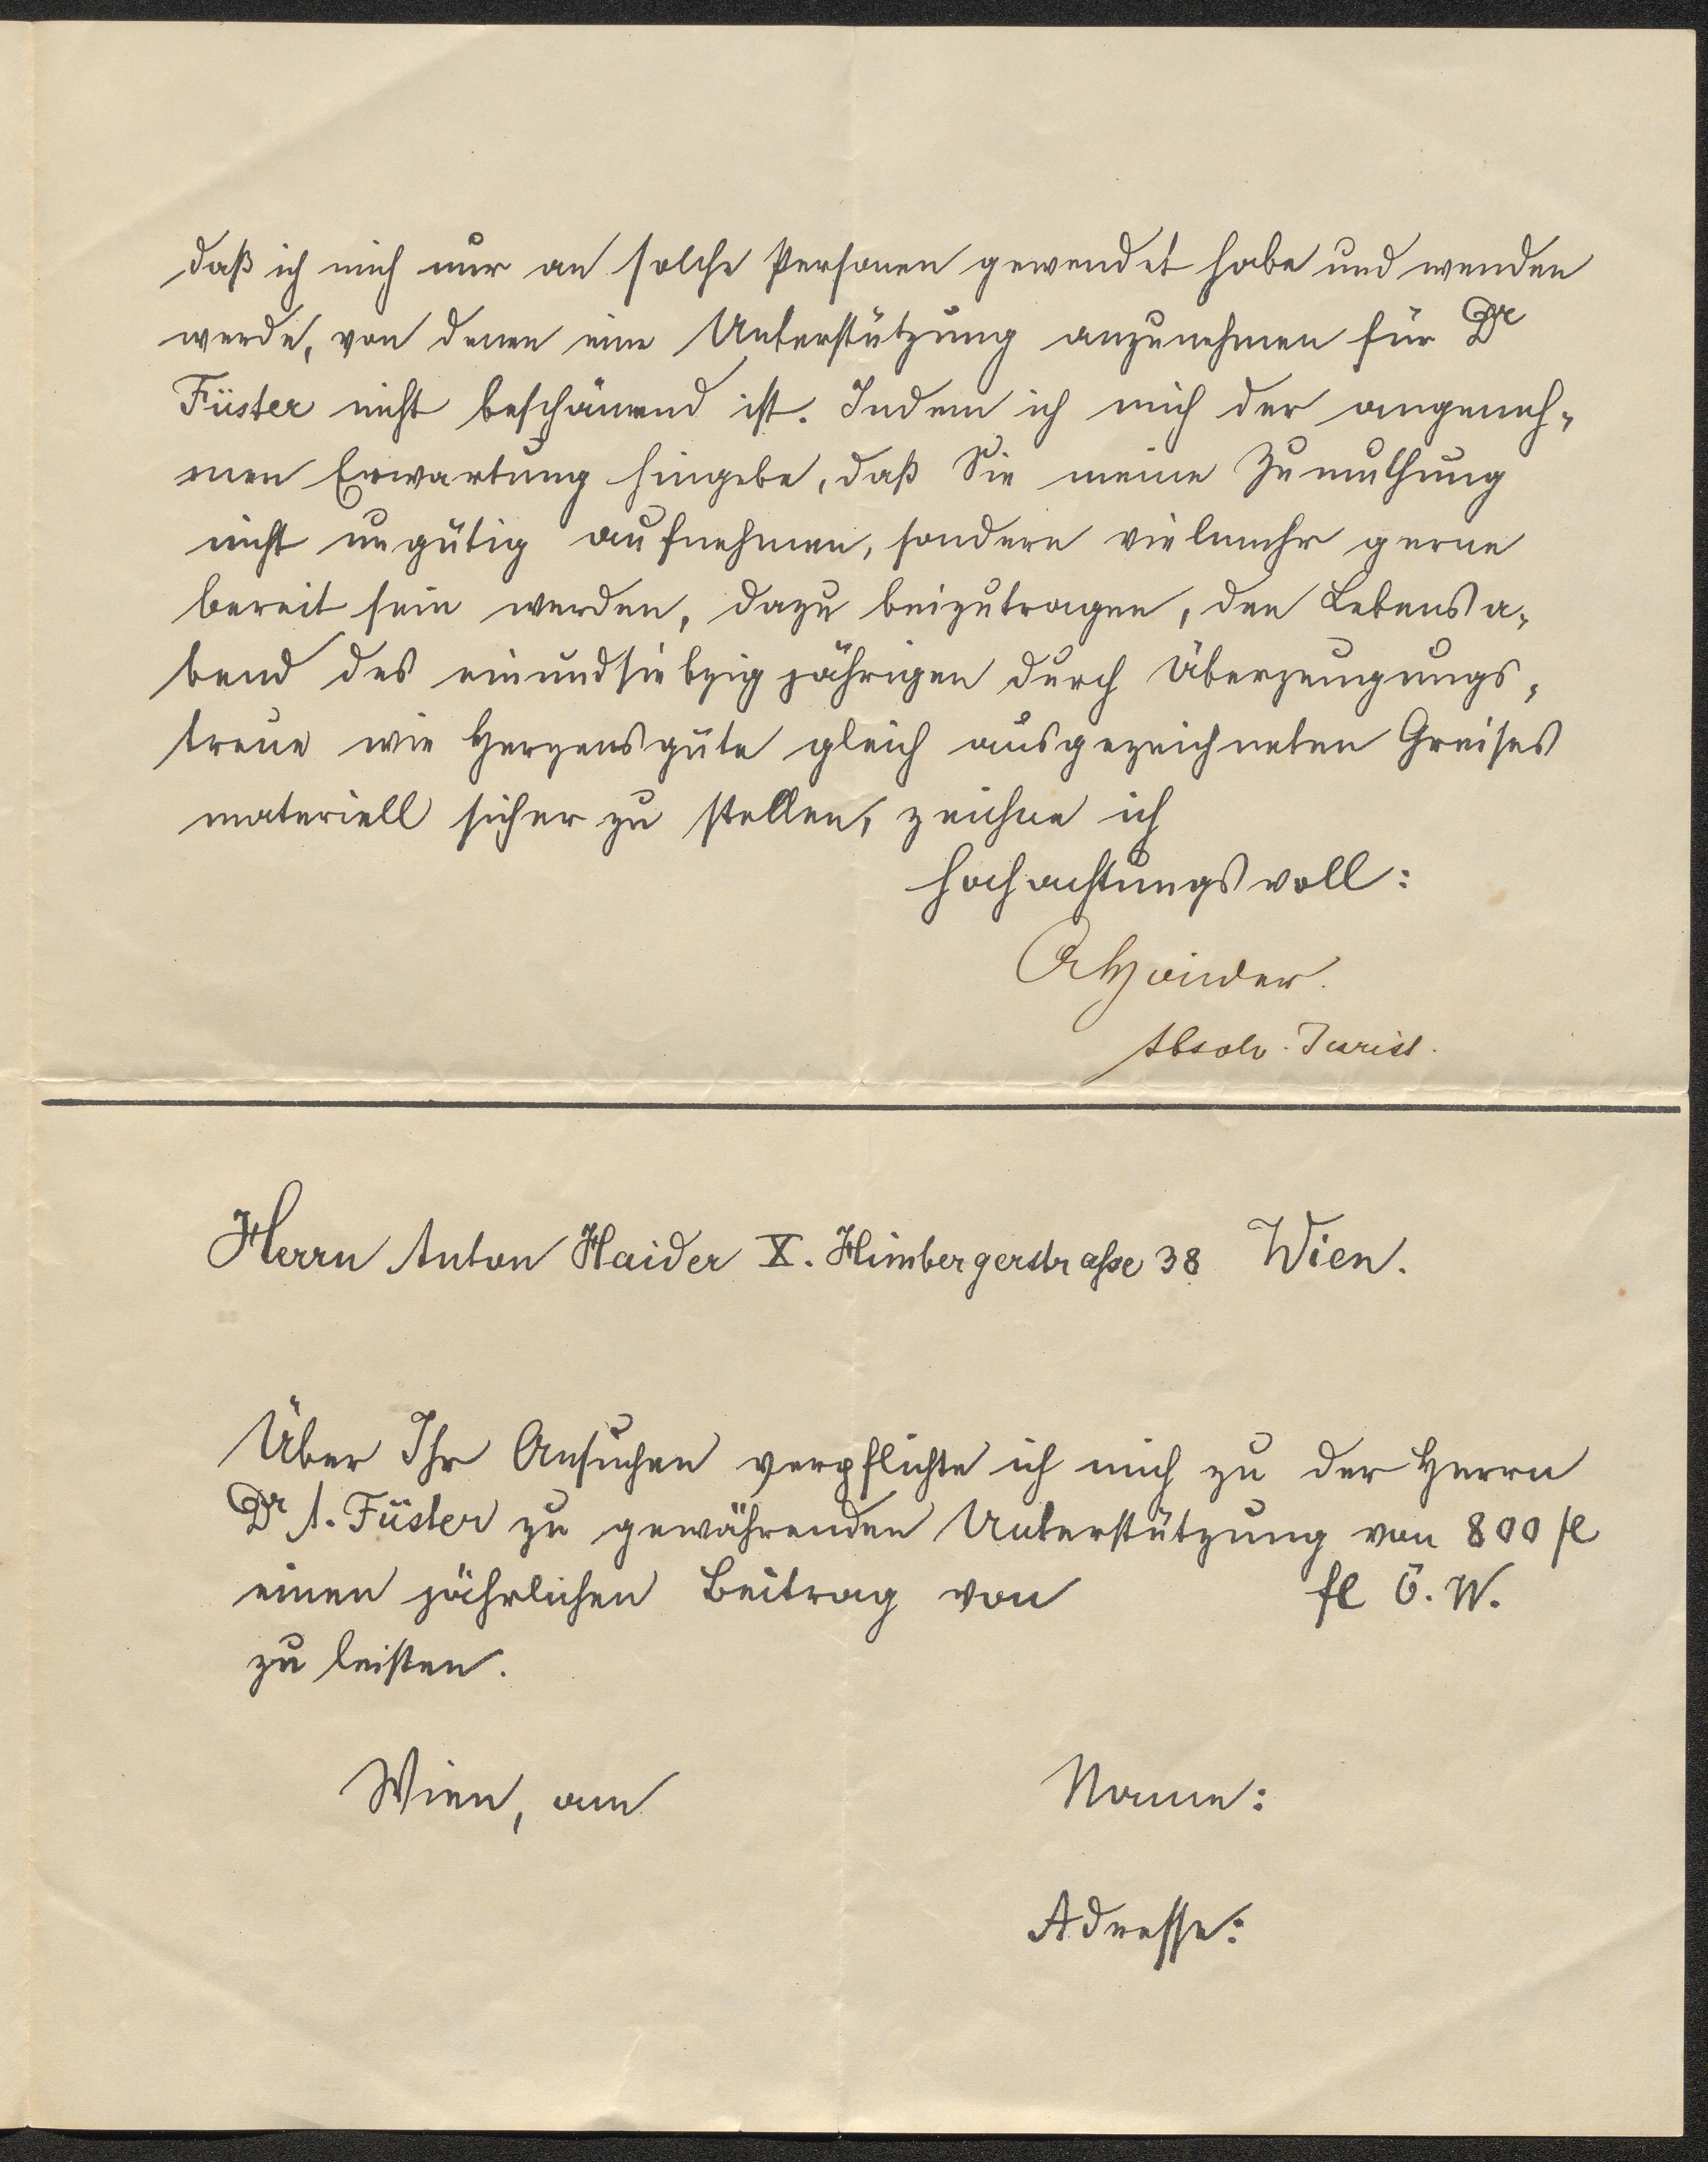 daß ich mich nur an solche Personen gewendet habe und wenden
werde, von denen eine Unterstützung anzunehmen für Dr
Füster nicht beschämend ist. Indem ich mich der angeneh-
men Erwartung hingebe, daß Sie meine Zumuthung
nicht ungütig aufnehmen, sondern vielmehr gerne
bereit sein werden, dazu beizutragen, den Lebensa-
bend des einundsiebzigjährigen durch Überzeugungs-
treue wie Herzensgüte gleich ausgezeichneten Greises
materiell sicher zu stellen, zeichne ich
hochachtungsvoll:
AHaider.
Absolv. Jurist.
Herrn Anton Haider X. Himbergerstraße 38 Wien.
Über Ihr Ansuchen verpflichte ich mich zu der Herrn
Dr A. Füster zu gewährenden Unterstützung von 800 fl
einen jährlichen Beitrag von fl Ö. W.
zu leisten.
Wien, am Name:
Adresse: